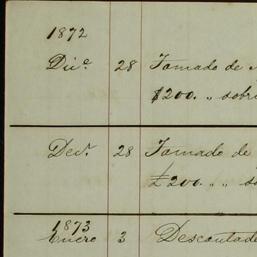 1872
Dice. 28 Tomado de
$200. „ sobre
Decr. 28 Tomado de
£200. „ „ so
1873
Enero 3 Descontado